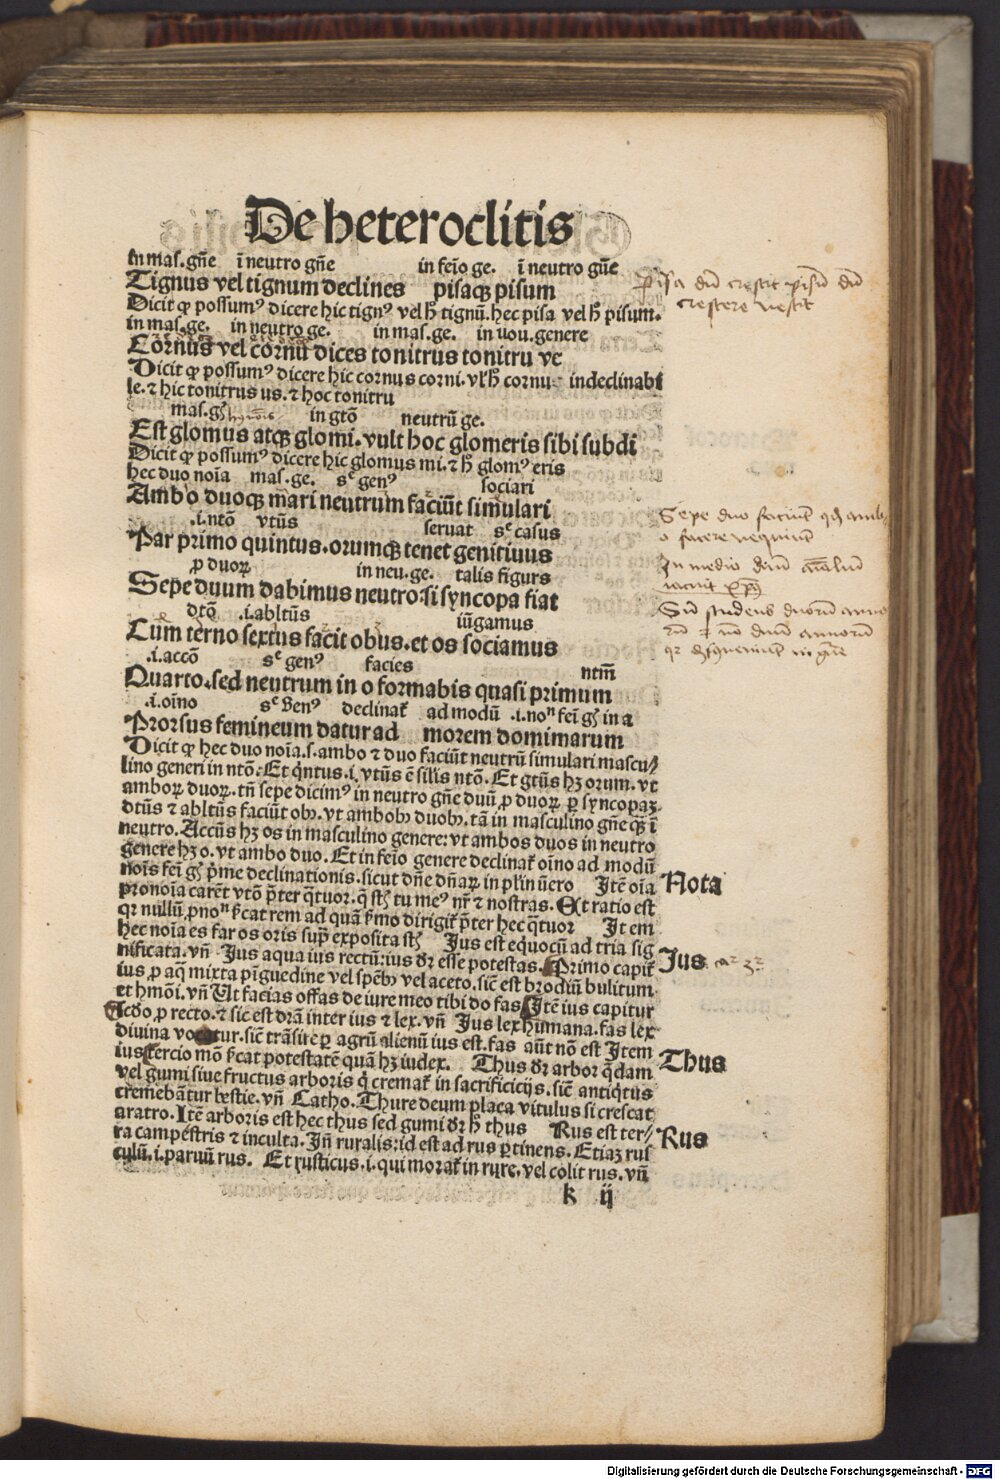 De heteroclitis
in mas. gn̄e ī neutro gn̄e in fēio ge. ī neutro gn̄e
Tignus vel tignum declines pisaqꝫ pisum
Pisa dū crescit pisū dū
crescere nescit
Dicit ꝙ possumꝰ dicere hic tignꝰ vel hͦ tignū. hec pisa vel hͦ pisum.
in mas. ge. in neutro ge. in mas. ge. in uou. genere
Cornus vel cornū dices tonitrus tonitru ve
Dicit ꝙ possumꝰ dicere hic cornus corni. vl̓ hͦ cornu indeclinabi
le. ⁊ hic tonitrus us. ⁊ hoc tonitru
mas. in gtō neutrū ge.
Est glomus atqꝫ glomi. vult hoc glomeris sibi subdi
Dicit ꝙ possumꝰ dicere hic glomus mi. ⁊ hͦ glomꝰ eris
hec duo noīa mas. ge. sᵉ genꝰ sociari
Ambo duoqꝫ mari neutrum faciūt simulari
.i. ntō vtūs seruat sᵉ casus
Par primo quintus. orumqꝫ tenet genitiuus
ꝓ duoꝝ in neu. ge. talis figura
Sepe duum dabimus neutro: si syncopa fiat
dtō .i. abltūs iūgamus
Cum terno sextus facit obus. et os sociamus
.i. accō sᵉ genꝰ facies ntm̄
Quarto. sed neutrum in o formabis quasi primum
.i. oīno sᵉ genꝰ declinat̄ ad modū .i. noⁿ fēi gͥ in a
Prorsus femineum datur ad morem dominarum
Sepe duo faciūt
facere nequeunt
In medio duū aīaliū
iacuit
Sū studens duorū anno
rū ⁊ nō duū annorū
Dicit ꝙ hec duo noīa. s. ambo ⁊ duo faciūt neutrū simulari mascu⸗
lino generi in ntō. Et qͥntus. i. vtūs ē silīs ntō. Et gtūs hꝫ orum. vt
amboꝝ duoꝝ. tn̄ sepe dicimꝰ in neutro gn̄e duū. ꝓ duoꝝ ꝑ syncopaꝫ.
dtūs ⁊ abltūs faciūt obꝰ. vt ambobꝰ duobꝰ. tā in masculino gn̄e qꝫ̄ ī
neutro. Accūs hꝫ os in masculino genere: vt ambos duos in neutro
genere hꝫ o. vt ambo duo. Et in fēio genere declinat̄ oīno ad modū
noīs fēi gͥ pͥme declinationis. sicut dn̄e dn̄aꝝ in pl̄i nūero Itē oīa
Nota
pronoīa carēt vtō p̄ter qͣtuor. q̄ st̄ tu meꝰ nr̄ ⁊ nostras. Et ratio est
qꝛ nullū ꝓnoⁿ sͥcat rem ad quā sͥmo dirigit̄ p̄ter hec qͣtuor Item
hec noīa es far os oris supͥ exposita st̄ Jus est equocū ad tria sig
Jus
nificata. vn̄ Jus aqua ius rectū: ius dr̄ esse potestas. Primo capit̄
ius ꝓ aqͣ mixta pīguedine vel spēbꝰ vel aceto. sic̄ est brodiū bulitum
et hmōi. vn̄ Ut facias offas de iure meo tibi do fas Itē ius capitur
scdo ꝓ recto. ⁊ sic est dr̄a inter ius ⁊ lex. vn̄ Jus lex humana. fas lex
diuina vocatur. sic̄ trāsire ꝑ agrū alienū ius est. fas aūt nō est Item
ius tercio mō sͥcat potestatē quā hꝫ iudex. Thus dr̄ arbor qͥdam
Thus
vel gumi siue fructus arboris qͥ cremat̄ in sacrificiis. sic̄ antiqͥtus
cremebātur bestie. vn̄ Catho. Thure deum placa vitulus si crescat
aratro. Itē arboris est hec thus sed gumi dr̄ hͦ thus Rus est ter⸗
Rus
ra campestris ⁊ inculta. Jn̄ ruralis: id est ad rus ꝑtinens. Etiaꝫ rus
culū. i. paruū rus. Et rusticus. i. qui morat̄ in rure. vel colit rus. vn̄
k ij
Digitalisierung gefördert durch die Deutsche Forschungsgemeinschaft - DFG